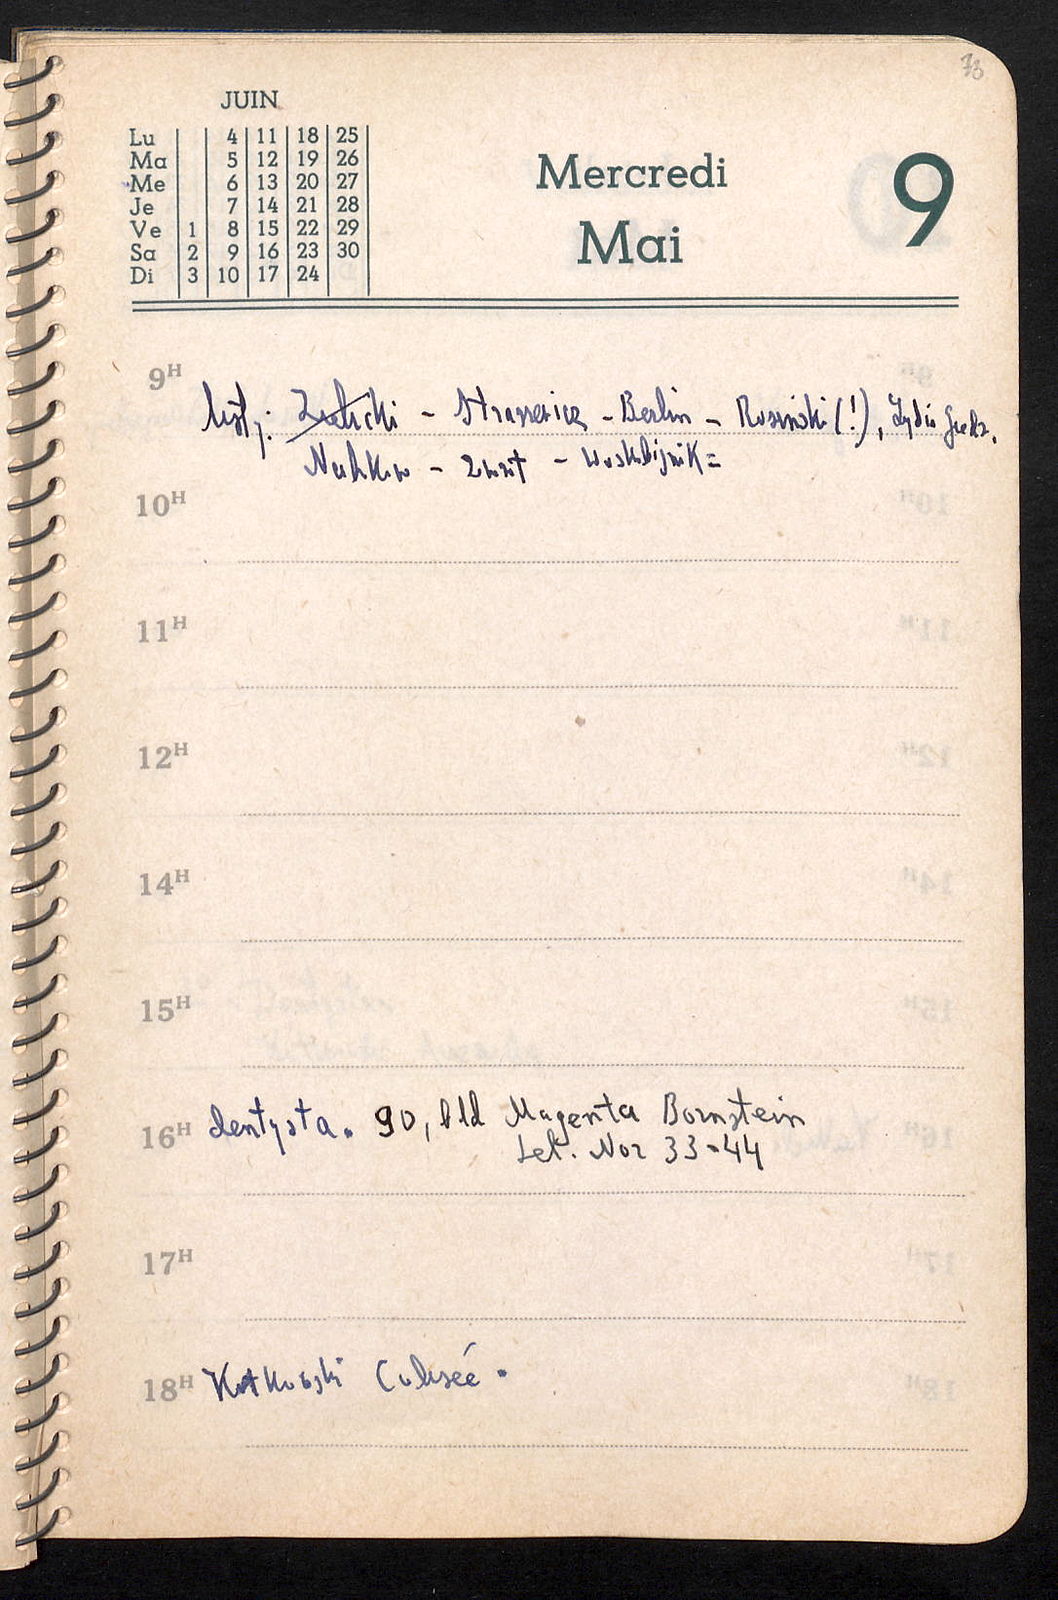 73
JUIN
Lu 4 11 18 25
Ma 5 12 19 26
Me 6 13 20 27
Je 7 14 21 28
Ve 1 8 15 22 29
Sa 2 9 16 23 30
Di 3 10 17 24
Mercredi 9
Mai
9H
listy: - Straszewicz - Berlin - Rosiński (!),
10H
11H
12H
14H
15H
16H dentysta. 90, bld Magenta Bornstein
tel. Nor 33-44
17H
18H Kotkowski Colisée.